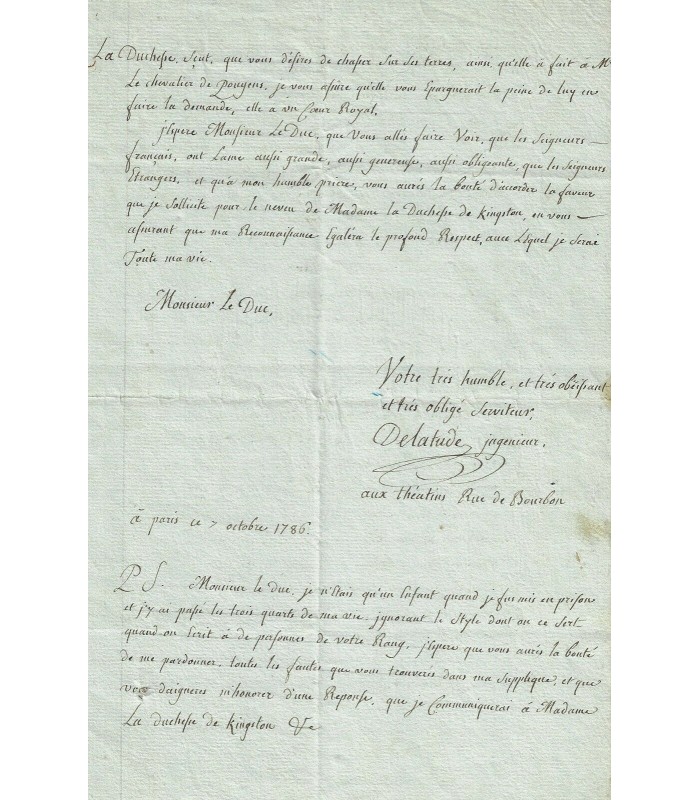 La Duchesse, sçut, que vous désires de chasser sur ses terres, ainsi, qu'elle à fait à Mr
Le chevalier de Pougens, je vous assure qu'elle vous Epargnerait la peine de luy en
faire la demande, elle à un Cœur Royal.
j'espere Monsieur Le Duc, que Vous allés faire Voir, que les Seigneurs —
français, ont Lame aussi grande, aussi genereuse, aussi obligeante, que les Seigneurs
Etrangers, et qu'à mon humble priere, vous aurés la bonté d'accorder la faveur
que je Sollicite pour le neveu de Madame la Duchesse de Kingston, en vous —
assurant que ma Reconnaissance Egalera le profond Respect, avec Lequel je serai
Toute ma vie.
Monsieur Le Duc,
Votre très humble, et trés obëissant
et trés obligé Serviteur,
Delatude, ingenieur,
aux théatins Rue de Bourbon
à paris ce 7 octobre 1786.
P S. Monsieur le duc, je n'étais qu'un Enfant quand je fus mis en prison
et j'y ai passé les trois quarts de ma vie ignorant le Style dont on ce Sert
quand on Ecrit à de personnes de votre Rang, j'espere que vous aurés la bonté
de me pardonner, toutes les fautes que vous trouveres dans ma Supplique, et que
vous daigneres m'honorer d'une Reponse, que je Communiquerai à Madame
La duchesse de Kingston &c